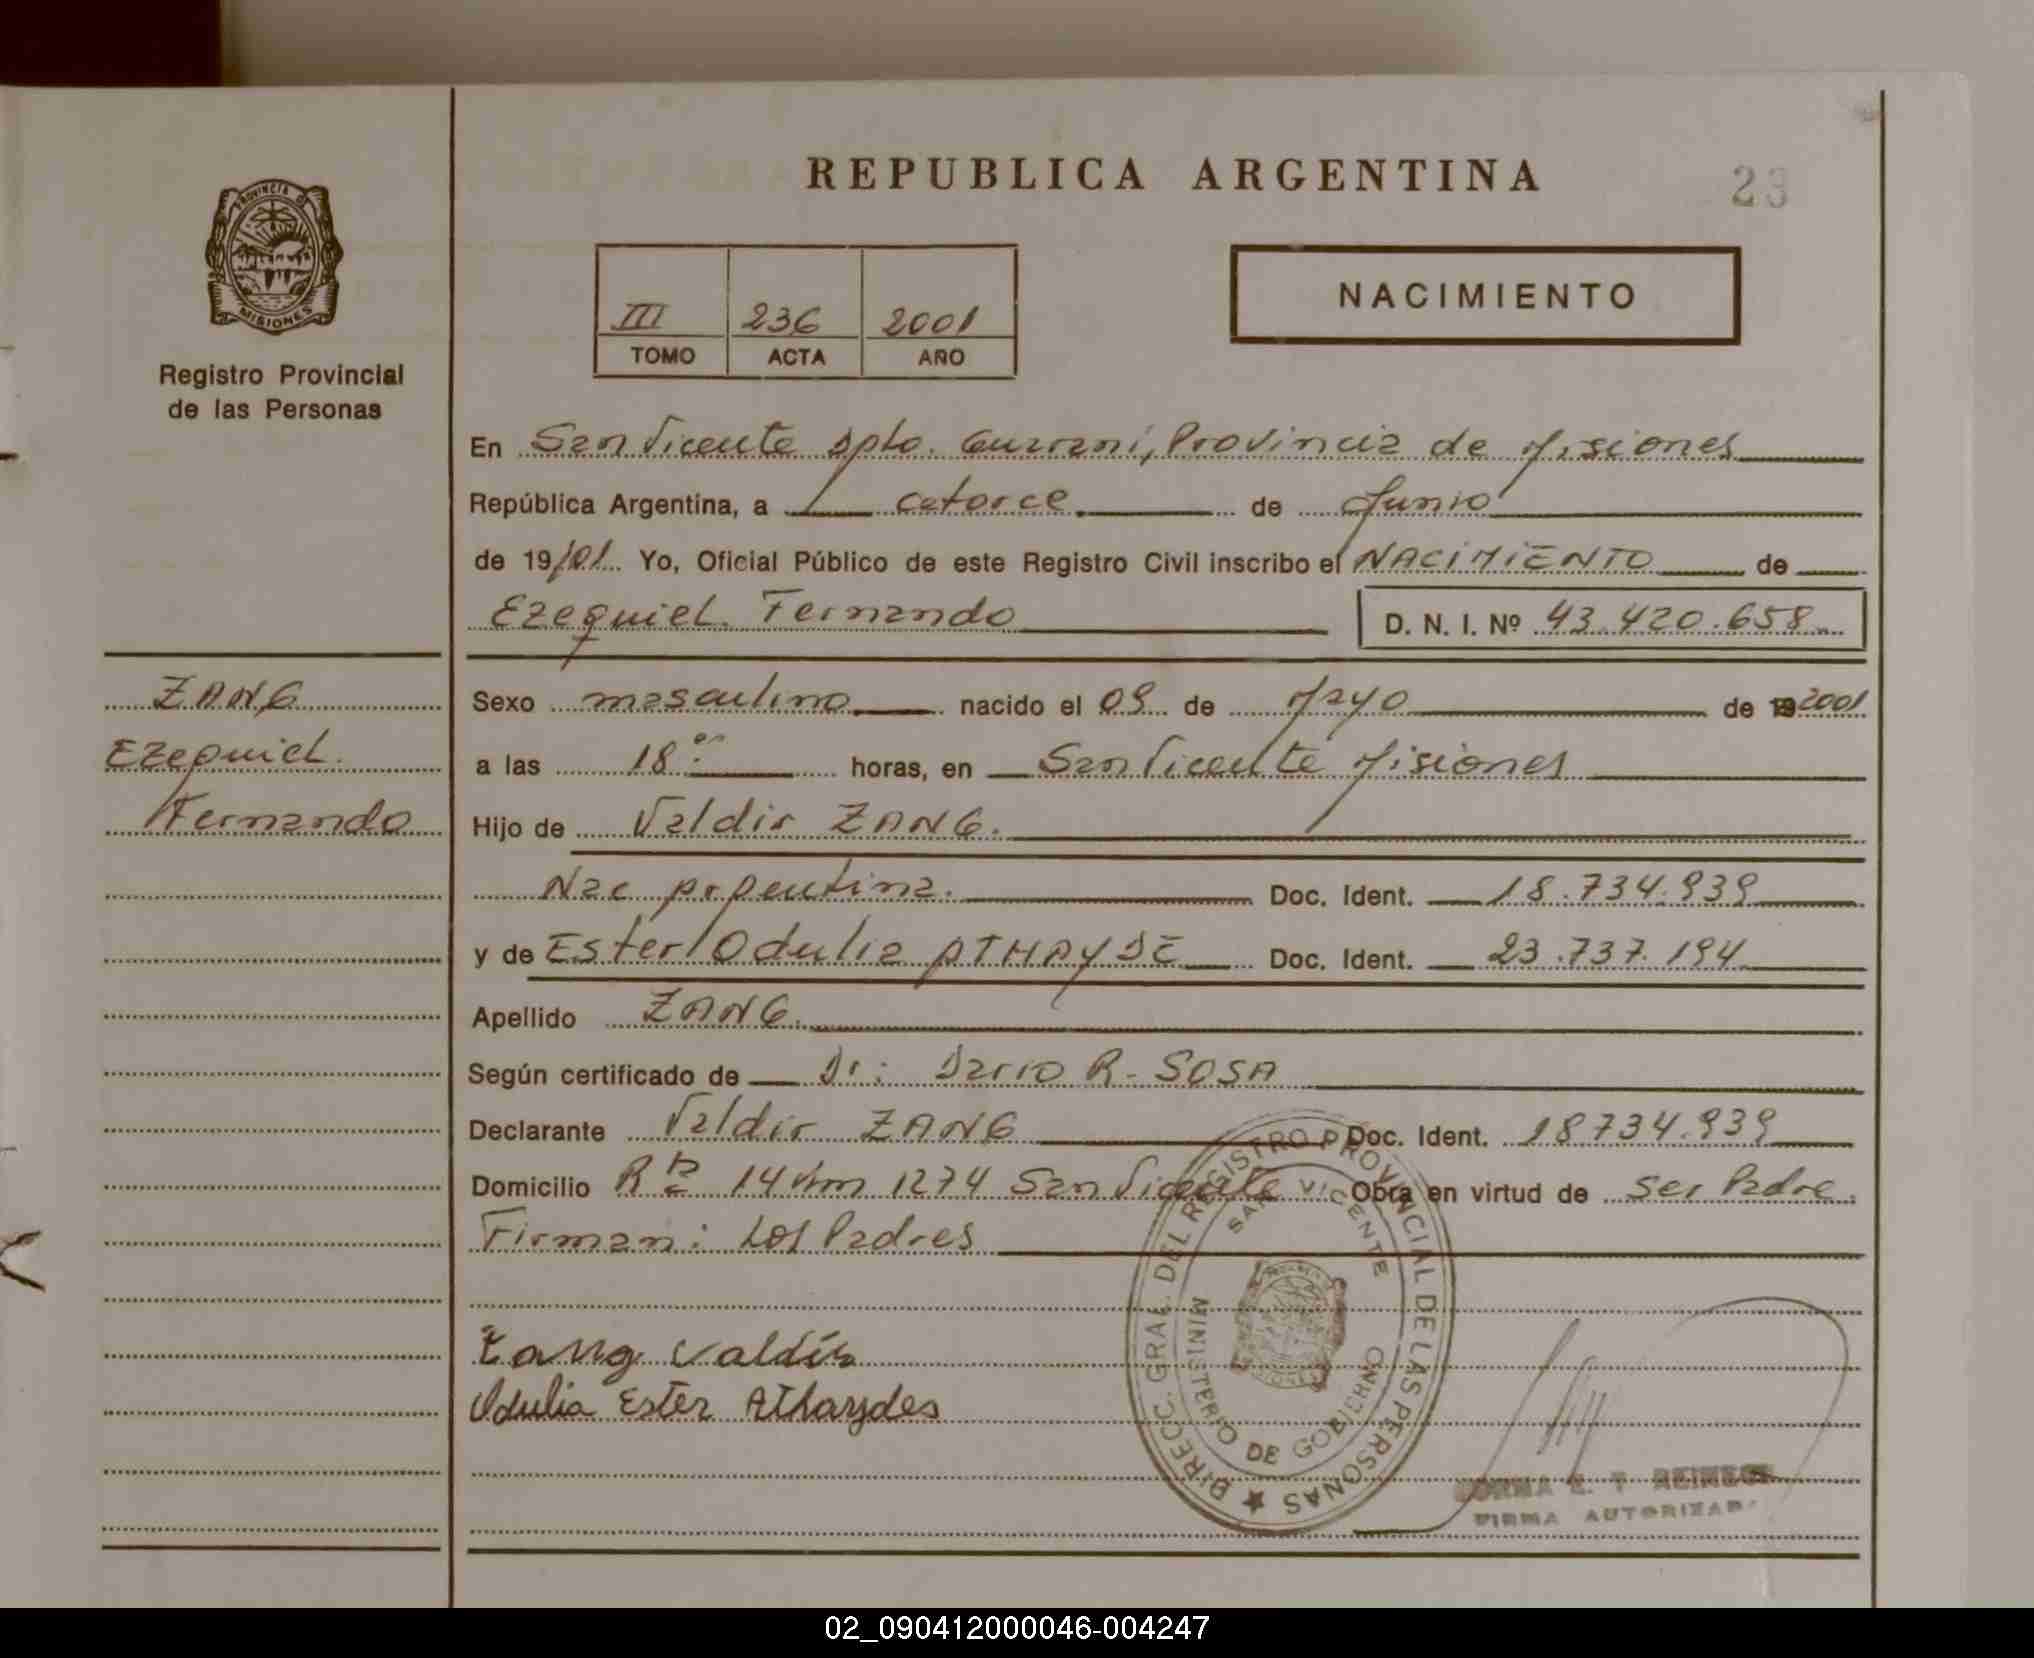 REPUBLICA ARGENTINA
23
PROVINCIA DE
MISIONES
Registro Provincial
de las Personas
III 236 2001
TOMO ACTA AÑO
NACIMIENTO
En San Vicente Dpto. Guarani, Provincia de Misiones
República Argentina, a catorce de Junio
de 19/01 Yo, Oficial Público de este Registro Civil inscribo el NACIMIENTO de
Ezequiel Fernando D. N. I. Nº 43.420.658
ZANG
Ezequiel
Fernando
Sexo masculino nacido el 09 de Mayo de 19 2001
a las 18 horas, en San Vicente Misiones
Hijo de Valdir ZANG.
Nac Argentina. Doc. Ident. 18.734.939
y de Ester Odulia ATHAYDE Doc. Ident. 23.737.194
Apellido ZANG.
Según certificado de Dr: Dario R. SOSA
Declarante Valdir ZANG Doc. Ident. 18734.939
Domicilio Rta 14 Km 1274 San Vicente Obra en virtud de ser Padre.
Firman: Los Padres
Zang Valdir
Odulia Ester Athaydes
DIRECC. GRAL. DEL REGISTRO PROVINCIAL DE LAS PERSONAS
SAN VICENTE
MINISTERIO DE GOBIERNO
NORMA E. T
FIRMA AUTORIZADA
02_090412000046-004247